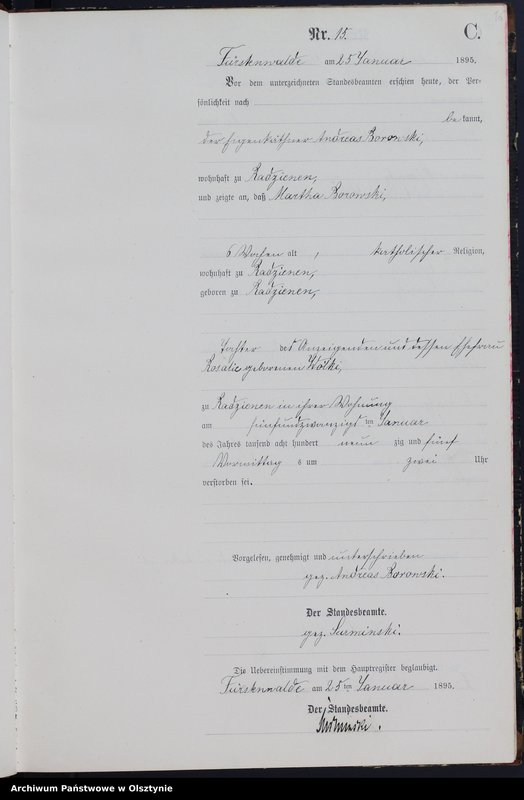 Nr. 15. C.
Fürstenwalde am 25 Januar 1895.
Vor dem unterzeichneten Standesbeamten erschien heute, der Per-
sönlichkeit nach
be kannt,
der Eigenkäthner Andreas Borowski,
wohnhaft zu Radzienen,
und zeigte an, daß Martha Borowski,
6 Wochen alt, katholischer Religion,
wohnhaft zu Radzienen,
geboren zu Radzienen,
Tochter des Anzeigenden und dessen Ehefrau
Rosalie geborenen
zu Radzienen in ihrer Wohnung
am fünfundzwanzigsten Januar
des Jahres tausend acht hundert neun zig und fünf
Vormittag s um zwei Uhr
verstorben sei.
Vorgelesen, genehmigt und unterschrieben
gez. Andreas Borowski.
Der Standesbeamte.
gez. Surminski.
Die Uebereinstimmung mit dem Hauptregister beglaubigt.
Fürstenwalde am 25 ten Januar 1895.
Der Standesbeamte.
Surminski.
Archiwum Państwowe w Olsztynie